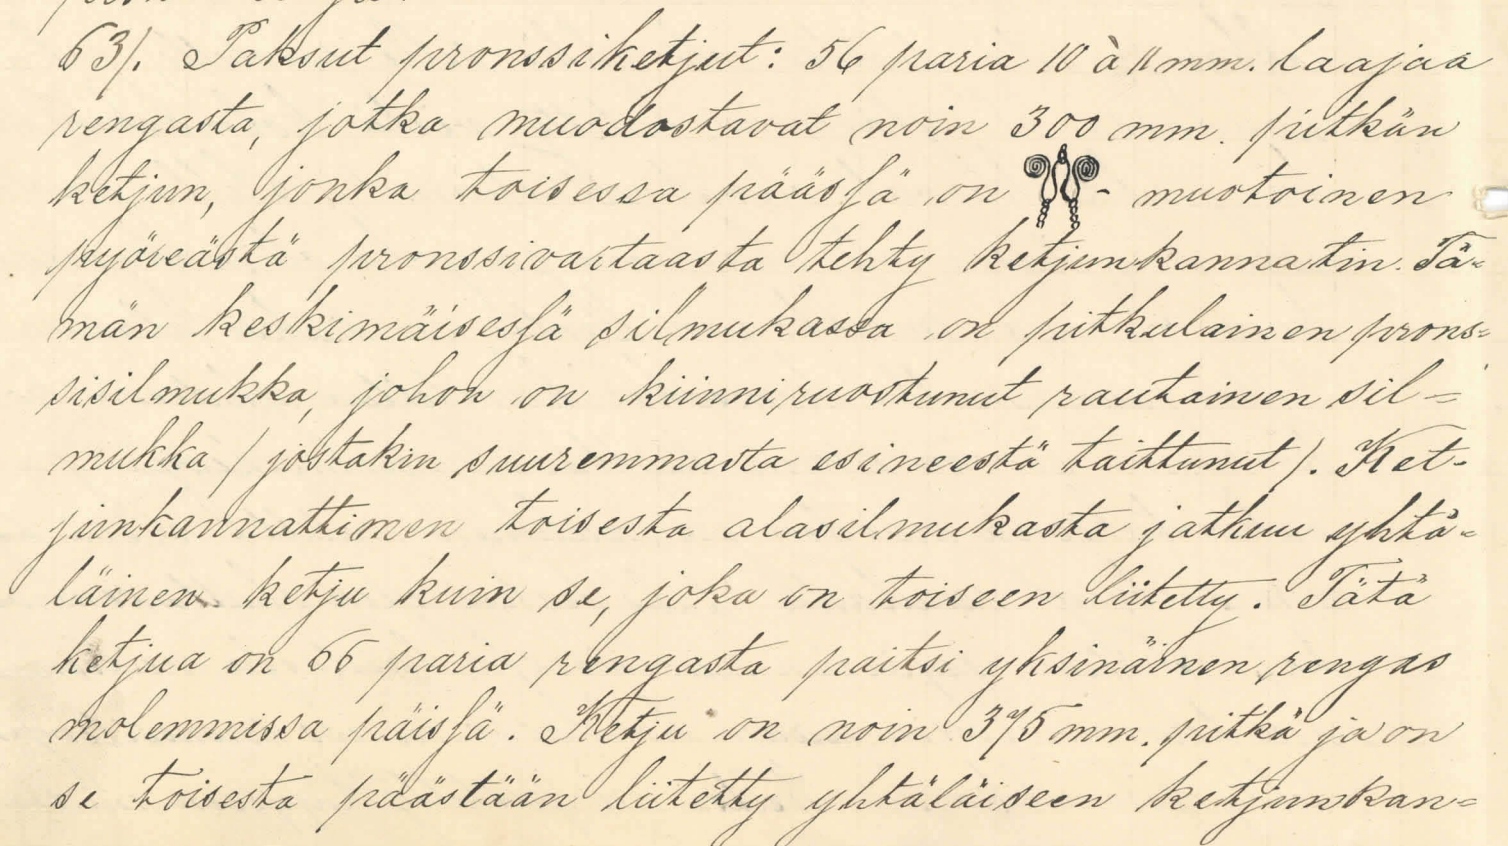 63/. Paksut pronssiketjut: 56 paria 10 à 11 mm. laajaa
rengasta, jotka muodostavat noin 300 mm. pitkän
ketjun, jonka toisessa päässä on - muotoinen
pyöreästä pronssivartaasta tehty ketjunkannatin. Tä-
män keskimäisessä silmukassa on pitkulainen prons=
sisilmukka, johon on kiinniruostunut rautainen sil=
mukka / jostakin suuremmasta esineestä taittunut /. Ket-
junkannattimen toisesta alasilmukasta jatkuu yhtä=
läinen ketju kuin se, joka on toiseen liitetty. Tätä
ketjua on 66 paria rengasta paitsi yksinäinen rengas
molemmissa päissä. Ketju on noin 375 mm. pitkä ja on
se toisesta päästään liitetty yhtäläiseen ketjunkan=